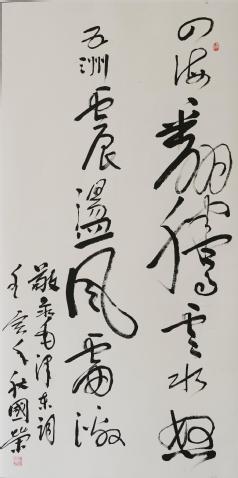 四海翻騰雲水怒
五洲震盪風雷激
敬录毛泽东詞
壬寅年 國榮